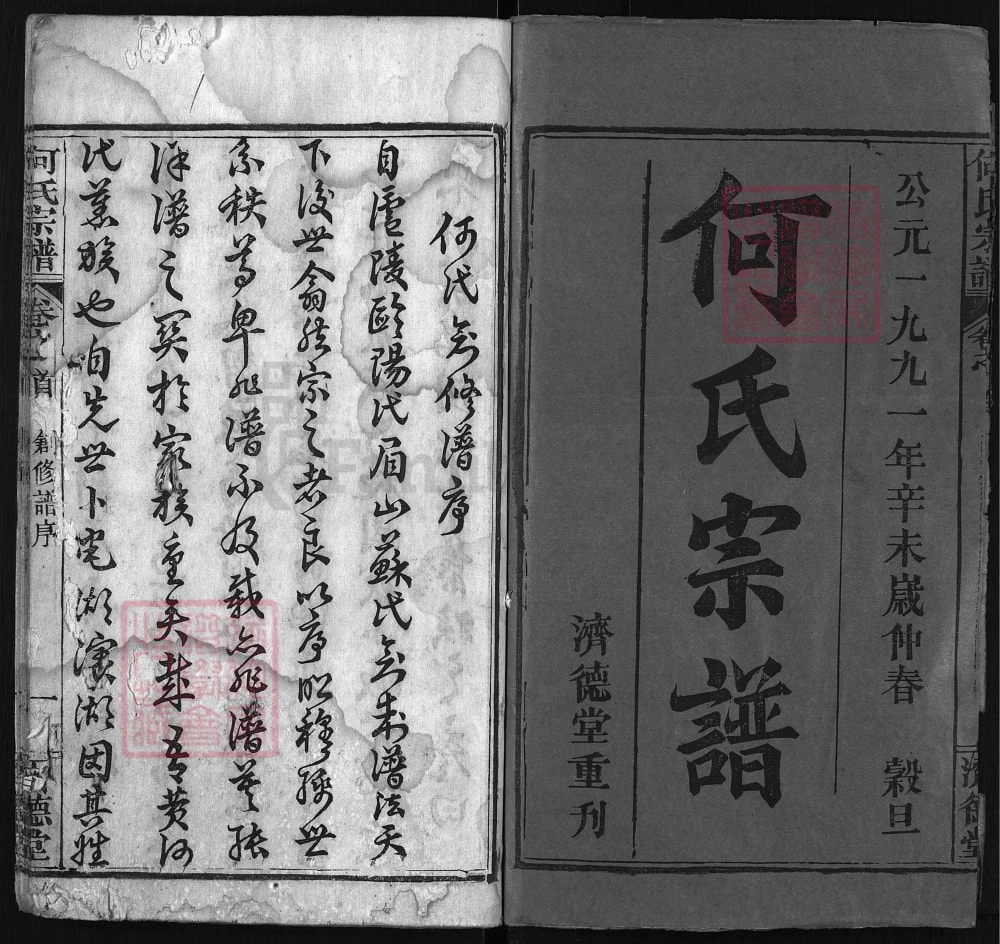 何氏宗譜
公元一九九一年辛未歲仲春 穀旦
何氏宗譜
濟德堂重刊
濟德堂
何氏創修譜序
自廬陵歐陽氏眉山蘇氏創制譜法天
下後世翕然宗之者良以序昭穆聯世
系秩尊卑非譜不及載亦非譜莫張
洋譜之關於家族重矣哉吾黄河
代舊族也自先世卜宅湖濱湖因其姓
何氏宗譜
卷首
創修譜序
一
濟德堂